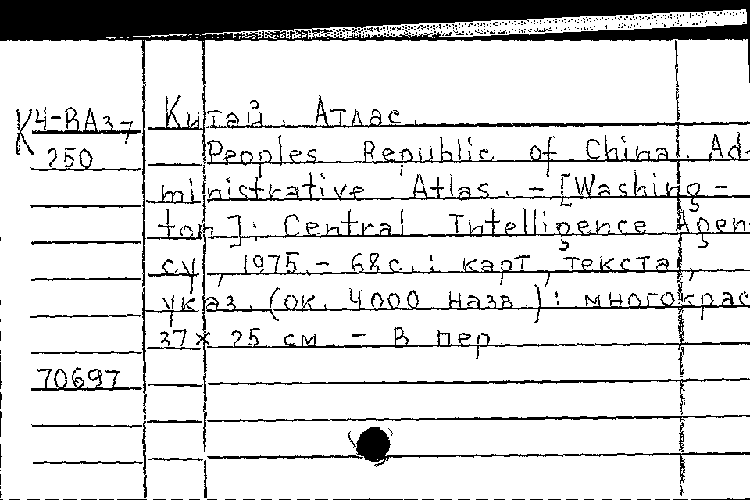 К4-RA37
250
Китай. Атлас.
Peoples Republic of China. Ad-
ministrative Atlas. - [Washing-
ton]: Central Intelligence Agen
cy, 1975. - 68 с.: карт, текста,
указ. (ок. 4000 назв.): многокрас
37 х 25 см - В пер
70697